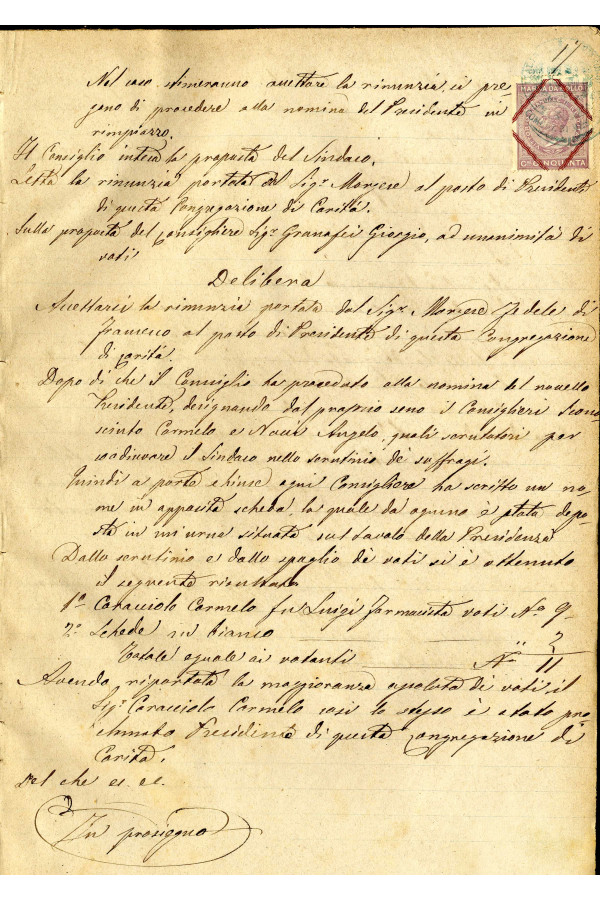 17
MARCA DA BOLLO
C. CINQUANTA
Nel caso stimeranno accettare la rinunzia, si pre
gano di procedere alla nomina del Presidente in
rimpiazzo.
Il Consiglio intesa la proposta del Sindaco.
Letta la rinunzia portata dal Sigr. Morgese al posto di Presidente
di questa Congregazione di Carità.
Sulla proposta del Consigliere Sigr. Granafei Giorgio, ad unanimità di
voti
Delibera
Accettarsi la rinunzia portata dal Sigr. Morgese Fedele di
Francesco al posto di Presidente di questa Congregazione
di Carità.
Dopo di che il Consiglio ha proceduto alla nomina del novello
Presidente, designando dal proprio seno i Consiglieri
Carmelo e Angelo, quali scrutatori per
coadiuvare il Sindaco nello scrutinio de' suffragi.
Quindi a porte chiuse ogni Consigliere ha scritto un no
me in apposita scheda, la quale da ognuno è stata depo
sta in un'urna situata sul tavolo della Presidenza
Dallo scrutinio e dallo spoglio de' voti si è ottenuto
il seguente risultato
1º Caracciolo Carmelo fu Luigi farmacista voti No. 9
2º Schede in bianco " 2
Totale eguale ai votanti No. 11
Avendo riportata la maggioranza assoluta di voti il
Sigr. Caracciolo Carmelo così lo stesso è stato pro
clamato Presidente di questa Congregazione di
Carità.
Del che ec. ec.
In prosieguo